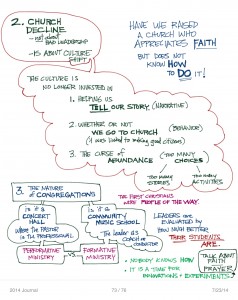 2. CHURCH
DECLINE
- not about
BAD LEADERSHIP
- IS ABOUT CULTURE
SHIFT
HAVE WE RAISED
A CHURCH WHO
APPRECIATES FAITH
BUT DOES NOT
KNOW HOW
TO DO it!
THE CULTURE IS
NO LONGER INVESTED IN
1. HELPING US
TELL OUR STORY (NARRATIVE)
2. WHETHER OR NOT
WE GO TO CHURCH (BEHAVIOR)
(it was linked to making good citizens)
3. THE CURSE OF (TOO MANY
ABUNDANCE CHOICES)
TOO MANY
STORIES
TOO MANY
ACTIVITIES
3. THE NATURE
of CONGREGATIONS
THE FIRST CHRISTIANS
WERE PEOPLE OF THE WAY.
is it a
CONCERT
HALL
where the PASTOR
is the PROFESSIONAL
is it a
COMMUNITY
MUSIC SCHOOL
The leader as
COACH or
CONDUCTOR
LEADERS are
EVALUATED by
HOW MUCH BETTER
THEIR STUDENTS
ARE.
PERFORMATIVE
MINISTRY
vs
FORMATIVE
MINISTRY
TALK ABOUT
FAITH
PRAYER
• NOBODY KNOWS HOW
• IT IS A TIME FOR
INNOVATIONS + EXPERIMENTS
2014 Journal
73 / 78
7/23/14